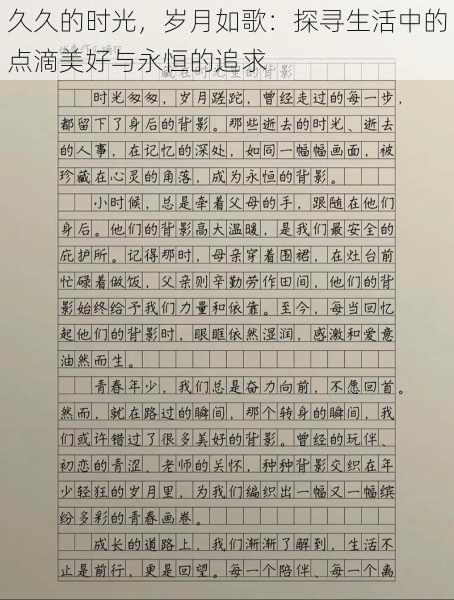 久久的时光，岁月如歌：探寻生活中的
点滴美好与永恒的追求
藏在时光里的背影
时光匆匆，岁月蹉跎，曾经走过的每一步，
都留下了身后的背影。那些逝去的时光、逝去
的人事，在记忆的深处，如同一幅幅画面，被
珍藏在心灵的角落，成为永恒的背影。
小时候，总是牵着父母的手，跟随在他们
身后。他们的背影高大温暖，是我们最安全的
庇护所。记得那时，母亲穿着围裙，在灶台前
忙碌着做饭，父亲则辛勤劳作田间，他们的背
影始终给予我们力量和依靠。至今，每当回忆
起他们的背影时，眼眶依然湿润，感激和爱意
油然而生。
青春年少，我们总是奋力向前，不愿回首。
然而，就在路过的瞬间，那个转身的瞬间，我
们或许错过了很多美好的背影。曾经的玩伴、
初恋的青涩、老师的关怀，种种背影交织在年
少轻狂的岁月里，为我们编织出一幅又一幅缤
纷多彩的青春画卷。
成长的道路上，我们渐渐了解到，生活不
止是前行，更是回望。每一个陪伴、每一个离